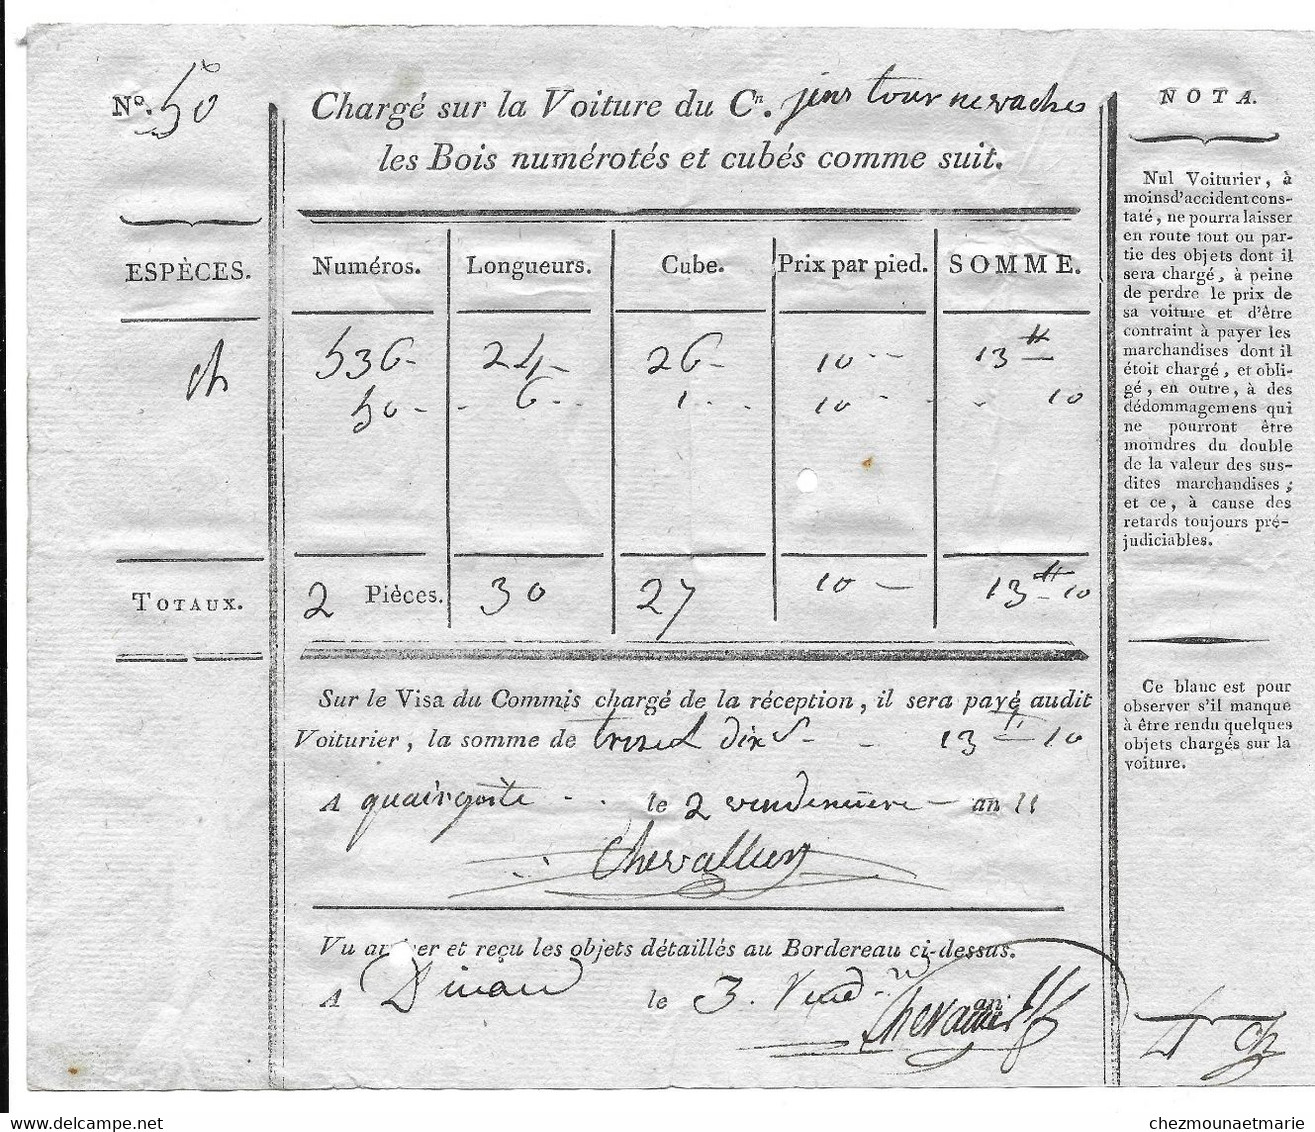 N.º 50
Chargé sur la Voiture du C.n jins tournevaches
les Bois numérotés et cubés comme suit.
ESPÈCES. Numéros. Longueurs. Cube. Prix par pied. SOMME.
ch 536 - 24 - 26 - 10 -- 13 ₶ -
50 - - 6 - - 1 - - 10 - - - 10
TOTAUX. 2 Pièces. 30 27 10 - 13 ₶ 10
Sur le Visa du Commis chargé de la réception, il sera payé audit
Voiturier, la somme de treize ₶ dix s - - 13 ₶ 10
A - - le 2 vendemiere - an 11
Chevallier
Vu arriver et reçu les objets détaillés au Bordereau ci-dessus.
A Dinan le 3. Vend.re an 11
NOTA.
Nul Voiturier, à
moins d'accident cons-
taté, ne pourra laisser
en route tout ou par-
tie des objets dont il
sera chargé, à peine
de perdre le prix de
sa voiture et d'être
contraint à payer les
marchandises dont il
étoit chargé, et obli-
gé, en outre, à des
dédommagemens qui
ne pourront être
moindres du double
de la valeur des sus-
dites marchandises;
et ce, à cause des
retards toujours pré-
judiciables.
Ce blanc est pour
observer s'il manque
à être rendu quelques
objets chargés sur la
voiture.
www.delcampe.net
chezmounaetmarie